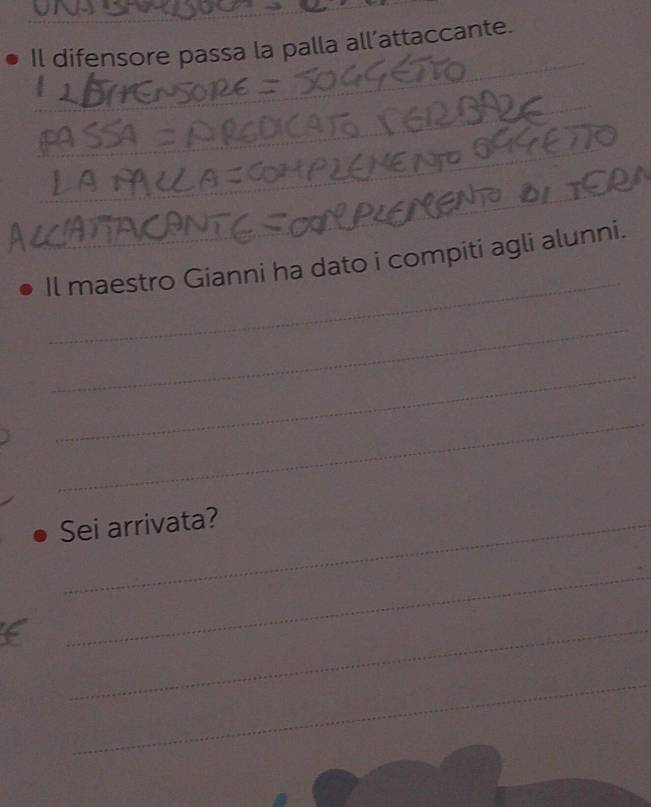 • Il difensore passa la palla all'attaccante.
IL DIFENSORE = SOGGETTO
PASSA = PREDICATO VERBALE
LA PALLA = COMPLEMENTO OGGETTO
ALL'ATTACANTE = COMPLEMENTO DI TERM
• Il maestro Gianni ha dato i compiti agli alunni.
• Sei arrivata?